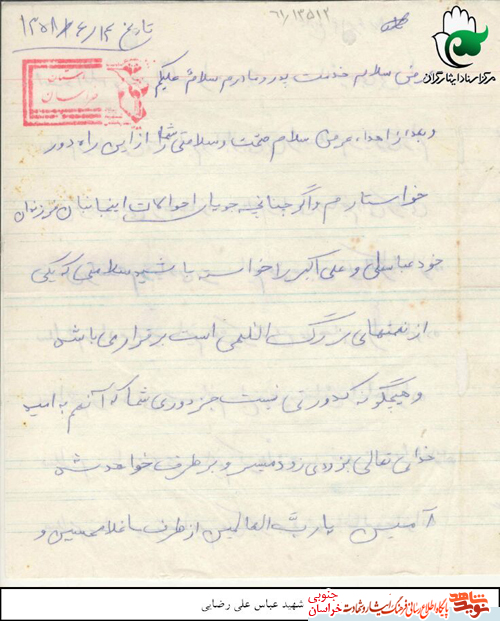 ۶۱/۱۳۵۱۲
تاریخ ۱۳۵۸/۶/۱۴
مرکز اسناد ایثارگران
عرض سلام خدمت پدر و مادرم سلام علیکم
خراسان
و بعد از اهداء عرض سلام صحت و سلامتی شما را از این راه دور
خواستارم و اگر چنانچه جویای احوالات اینجانبان فرزندان
خود عباسعلی و علی اکبر را خواسته باشید سلامتی که یکی
از نعمتهای بزرگ اللهی است برقرار می باشد
و هیچگونه کدورتی نیست جز دوری شما که آنهم به امید
خدای تعالی بزودی زود میسر و برطرف خواهد شد
آمیـن یارب العالمین از طرف ما غلامحسین و
شهید عباس علی رضایی
نوید شاهد
پایگاه اطلاع رسانی فرهنگ ایثار و شهادت
خراسان جنوبی